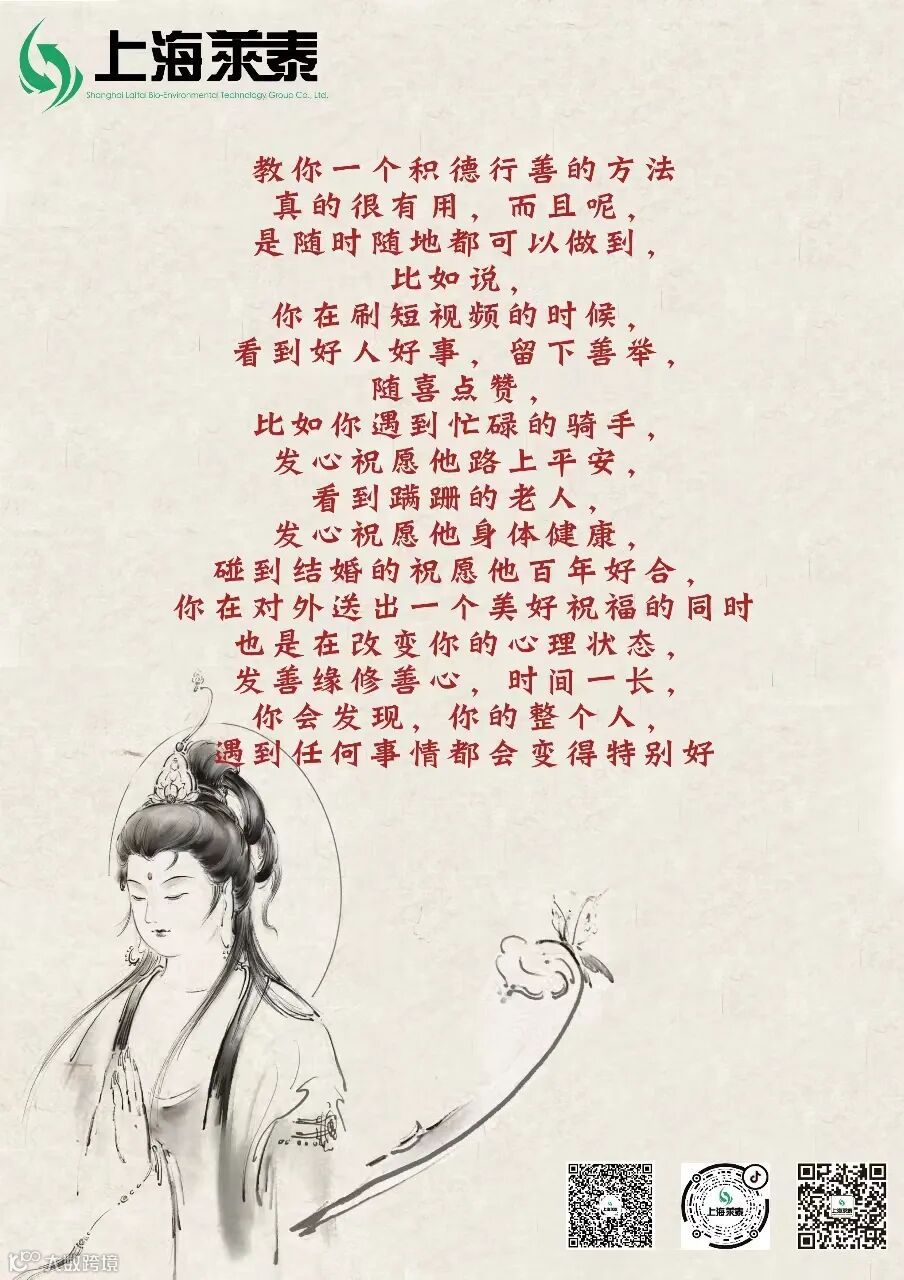 上海莱泰
Shanghai Laitai Bio-Environmental Technology Group Co., Ltd.
教你一个积德行善的方法
真的很有用，而且呢，
是随时随地都可以做到，
比如说，
你在刷短视频的时候，
看到好人好事，留下善举，
随喜点赞，
比如你遇到忙碌的骑手，
发心祝愿他路上平安，
看到蹒跚的老人，
发心祝愿他身体健康，
碰到结婚的祝愿他百年好合，
你在对外送出一个美好祝福的同时
也是在改变你的心理状态，
发善缘修善心，时间一长，
你会发现，你的整个人，
遇到任何事情都会变得特别好
上海莱泰
上海莱泰
上海莱泰
大数跨境